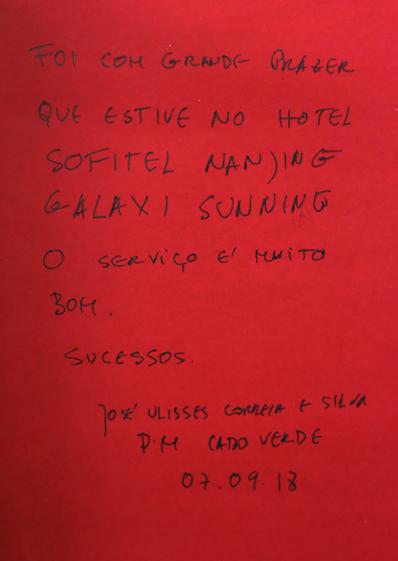 FOI COM GRANDE PRAZER
QUE ESTIVE NO HOTEL
SOFITEL NANJING
GALAXI SUNNING
O SERVIÇO É MUITO
BOM.
SUCESSOS.
JOSÉ ULISSES CORREIA E SILVA
P.M CABO VERDE
07.09.18